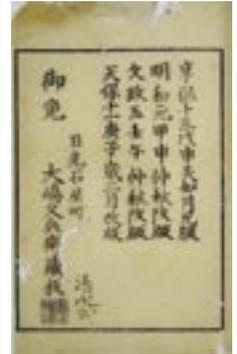 享保十三戊申天卯月元版
明和元甲申仲秋改版
文政五壬午仲秋改版
天保十一庚子歳二月改版
日光石屋町
御免 大嶋久兵衛蔵板